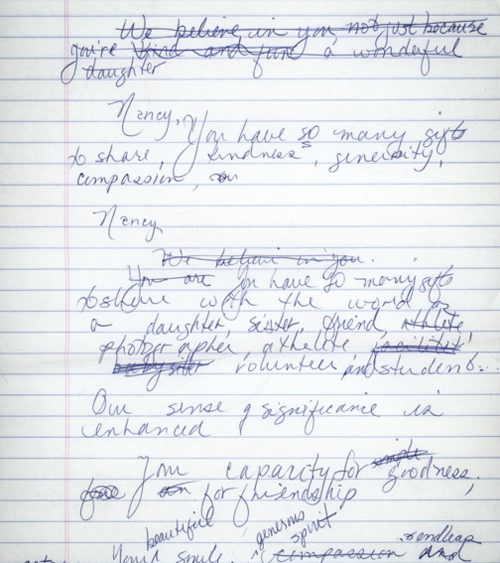 We believe in you not just because
you're kind and fun a wonderful
daughter
Nancy,
You have so many gifts
to share, kindness, generosity,
compassion, 
Nancy
We believe in you.
You are You have so many gifts
to share with the world as
a daughter, sister, friend, athlete,
photographer, athelete,
babysitter volunteer, and student..
Our sense of significance is
enhanced
Your capacity for goodness,
for friendship
beautiful generous spirit
Your smile, compassion and